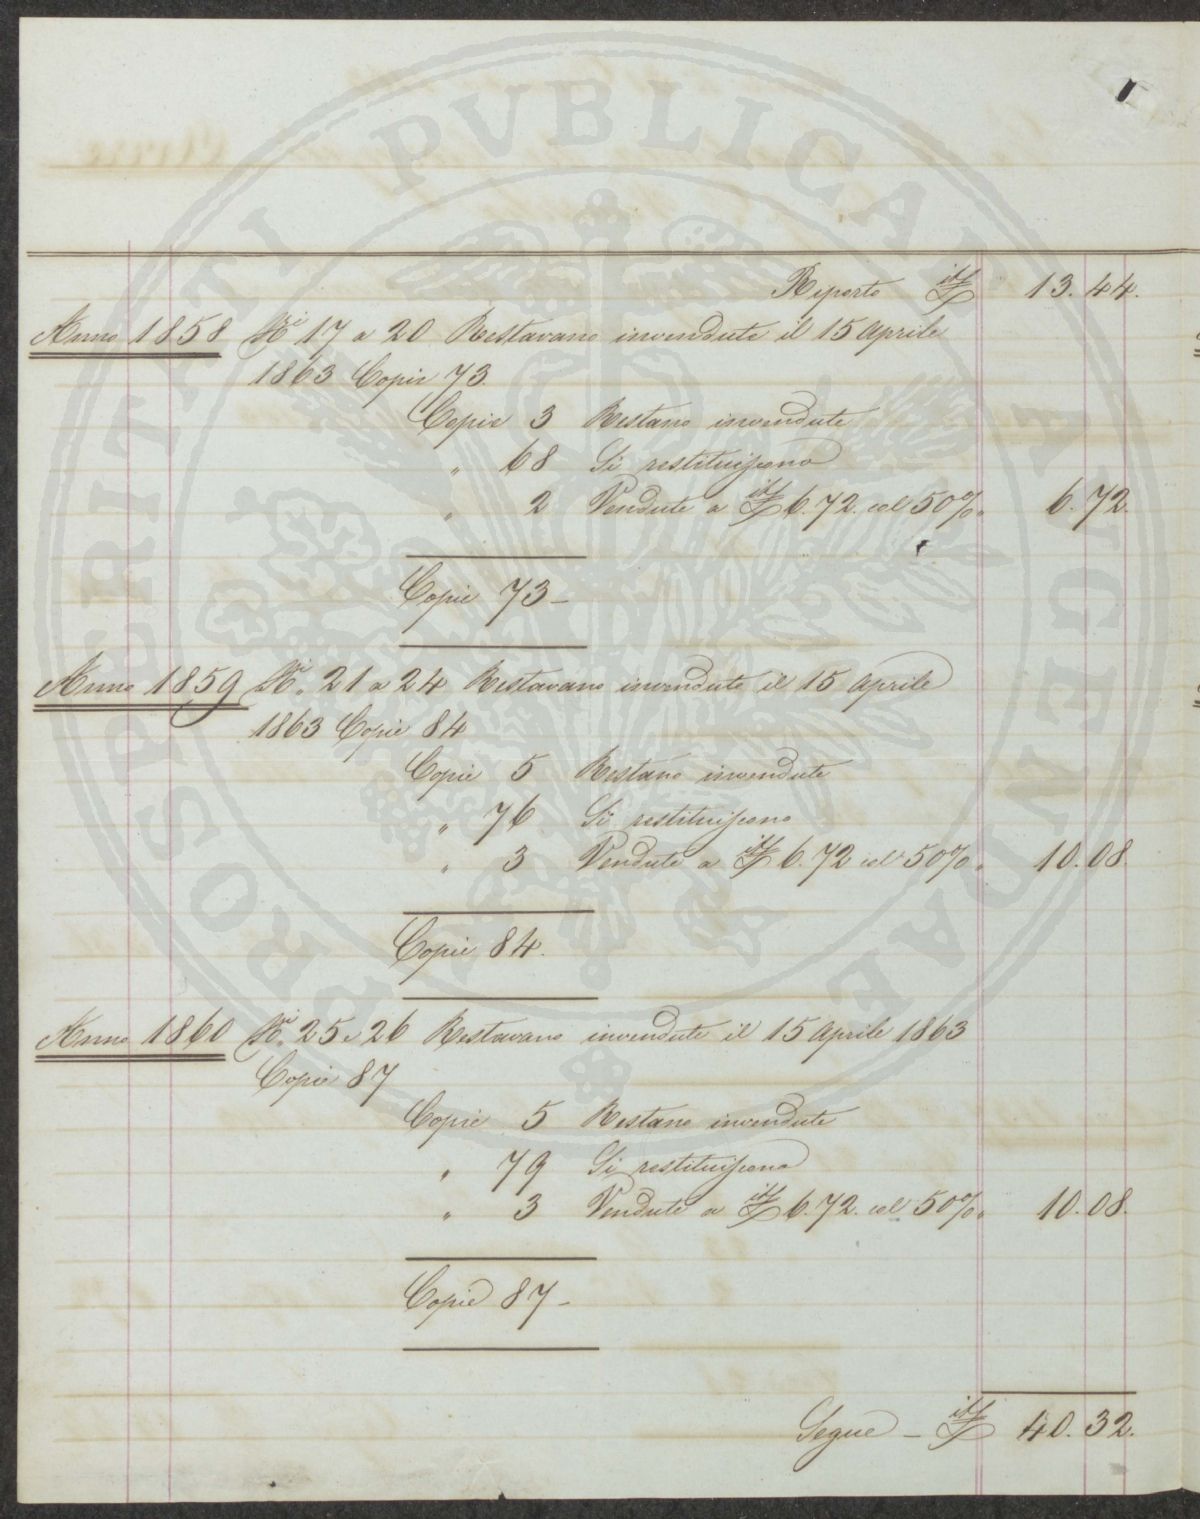 Riporto it£ 13.44.
Anno 1858 Ni 17 a 20 Restavano invendute il 15 Aprile
1863 Copie 73
Copie 3 Restano invendute
„ 68 Si restituiscono
„ 2 Vendute a it£ 6.72. col 50% „ 6.72.
Copie 73 –
Anno 1859 Ni. 21 a 24 Restavano invendute il 15 Aprile
1863 Copie 84
Copie 5 Restano invendute
„ 76 Si restituiscono
„ 3 Vendute a it£ 6.72 col 50% „ 10.08
Copie 84.
Anno 1860 Ni. 25 e 26 Restavano invendute il 15 Aprile 1863
Copie 87
Copie 5 Restano invendute
„ 79 Si restituiscono
„ 3 Vendute a it£ 6.72. col 50% „ 10.08.
Copie 87 –
Segue – it£ 40.32.
PROSPERITATI PVBLICAE AVGENDAE